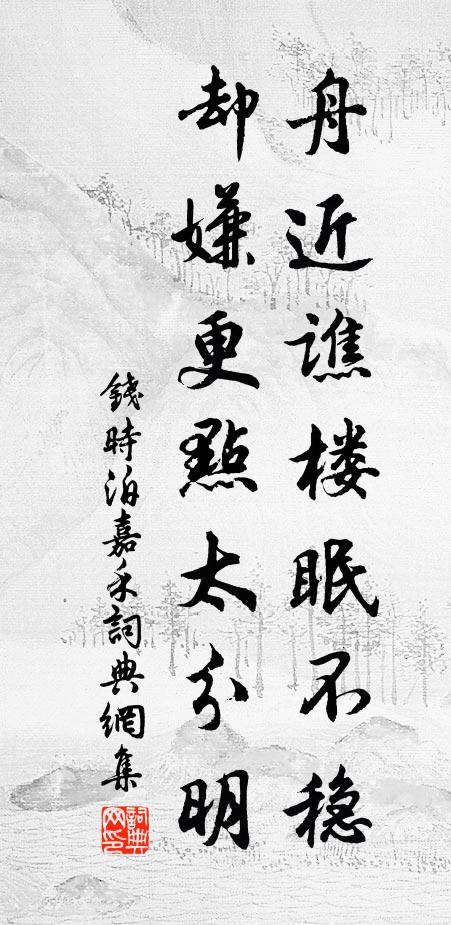 舟近谯楼眠不稳
却嫌更點太分明
錢時泊嘉禾詞典網集
詞典网印